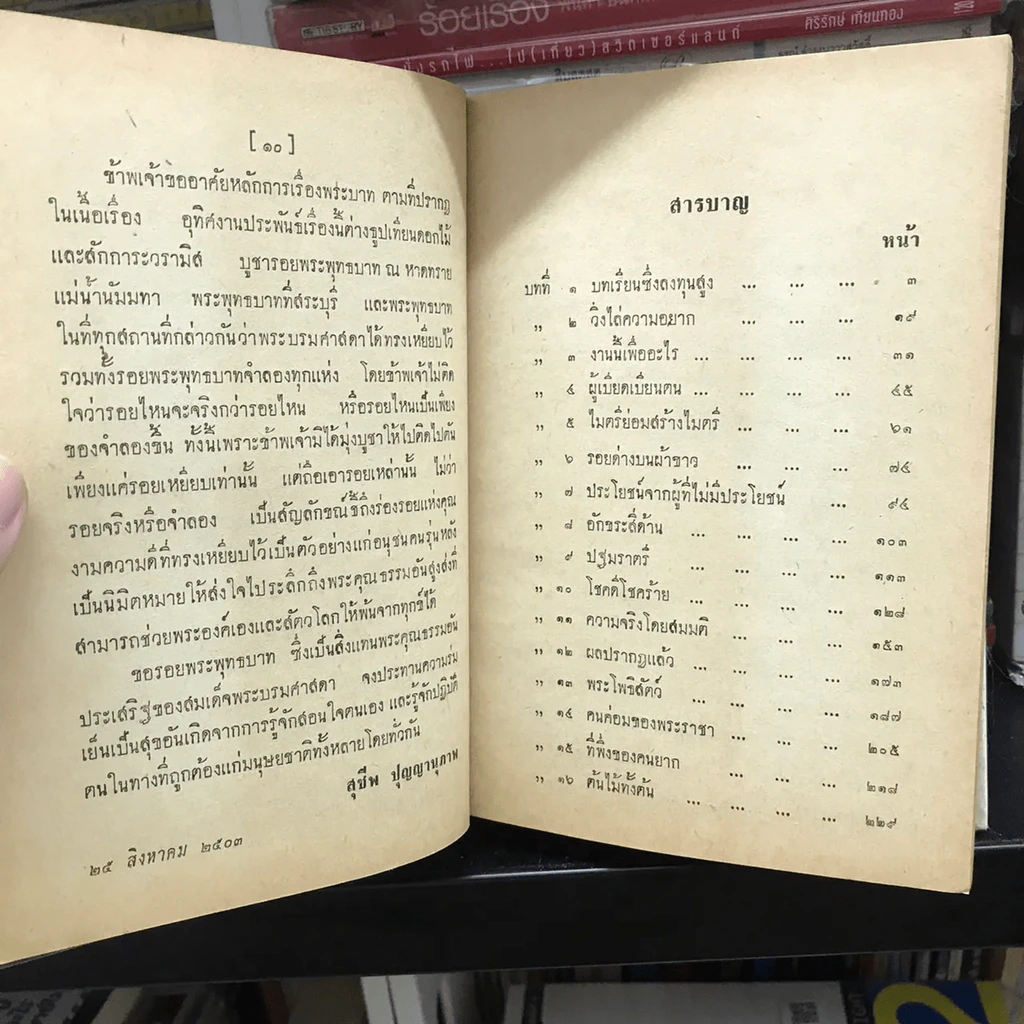 ร้อยเรื่อง
ศิริรักษ์ เทียนทอง
นั่งรถไฟ...ไป(เที่ยว)สวิตเซอร์แลนด์
[ ๑๐ ]
ข้าพเจ้าขออาศัยหลักการเรื่องพระบาท ตามที่ปรากฏ
ในเนื้อเรื่อง อุทิศงานประพันธ์เรื่องนี้ต่างธูปเทียนดอกไม้
และสักการะวรามิส บูชารอยพระพุทธบาท ณ หาดทราย
แม่น้ำนัมมทา พระพุทธบาทที่สระบุรี และพระพุทธบาท
ในที่ทุกสถานที่กล่าวกันว่าพระบรมศาสดาได้ทรงเหยียบไว้
รวมทั้งรอยพระพุทธบาทจำลองทุกแห่ง โดยข้าพเจ้าไม่ติด
ใจว่ารอยไหนจะจริงกว่ารอยไหน หรือรอยไหนเป็นเพียง
ของจำลองขึ้น ทั้งนี้เพราะข้าพเจ้ามิได้มุ่งบูชาให้ไปติดไปตัน
เพียงแค่รอยเหยียบเท่านั้น แต่ถือเอารอยเหล่านั้น ไม่ว่า
รอยจริงหรือจำลอง เป็นสัญลักขณ์ชี้ถึงร่องรอยแห่งคุณ
งามความดีที่ทรงเหยียบไว้เป็นตัวอย่างแก่อนุชนคนรุ่นหลัง
เป็นนิมิตหมายให้ส่งใจไประลึกถึงพระคุณธรรมอันสูงส่งที่
สามารถช่วยพระองค์เองและสัตวโลกให้พ้นจากทุกข์ได้
ขอรอยพระพุทธบาท ซึ่งเป็นสิ่งแทนพระคุณธรรมอัน
ประเสริฐของสมเด็จพระบรมศาสดา จงประทานความร่ม
เย็นเป็นสุขอันเกิดจากการรู้จักสอนใจตนเอง และรู้จักปฏิบัติ
ตนในทางที่ถูกต้องแก่มนุษยชาติทั้งหลายโดยทั่วกัน
สุชีพ ปุญญานุภาพ
๒๕ สิงหาคม ๒๕๐๓
สารบาญ
หน้า
บทที่ ๑ บทเรียนซึ่งลงทุนสูง ... ... ... ๓
,, ๒ วิ่งไล่ความอยาก ... ... ... ๑๙
,, ๓ งานนี้เพื่ออะไร ... ... ... ... ๓๑
,, ๔ ผู้เบียดเบียนตน ... ... ... ... ๔๕
,, ๕ ไมตรีย่อมสร้างไมตรี ... ... ... ๖๑
,, ๖ รอยด่างบนผ้าขาว ... ... ... ๗๕
,, ๗ ประโยชน์จากผู้ที่ไม่มีประโยชน์ ... ๙๔
,, ๘ อักขระสี่ด้าน ... ... ... ... ๑๐๓
,, ๙ ปฐมราตรี ... ... ... ... ๑๑๓
,, ๑๐ โชคดีโชคร้าย ... ... ... ... ๑๒๘
,, ๑๑ ความจริงโดยสมมติ ... ... ... ๑๕๓
,, ๑๒ ผลปรากฏแล้ว ... ... ... ... ๑๗๓
,, ๑๓ พระโพธิสัตว์ ... ... ... ... ๑๘๗
,, ๑๔ คนค่อมของพระราชา ... ... ... ๒๐๕
,, ๑๕ ที่พึ่งของคนยาก ... ... ... ๒๑๘
,, ๑๖ ต้นไม้ทั้งต้น ... ... ... ... ๒๒๙
2